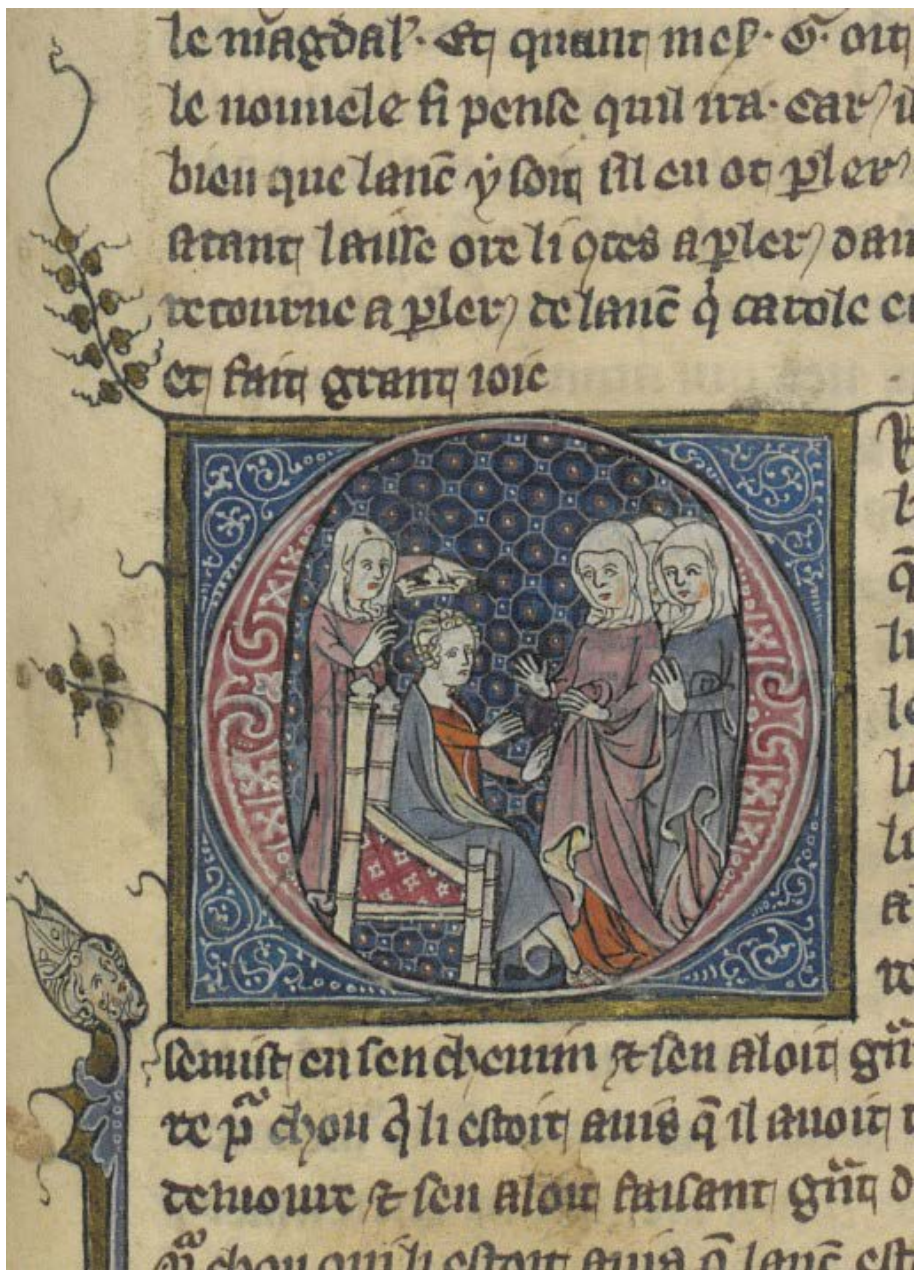 le magdal'. Et quant mes. G. oit
le nouuele si pense quil ira. Car il
bien que lanc̄ y soit sil en ot ꝑler
atant laisse ore li ꝯtes a ꝑler dau
retourne a ꝑler de lanc̄ q̇ carole e
et fait grant ioie
semist en sen chemin ⁊ sen aloit gñt
re pᷓ chou q̇ li estoit auis q̄ il auoit
demoure ⁊ sen aloit faisant gñt d
pᷓ chou qui li estoit auis q̄ lanc̄ est